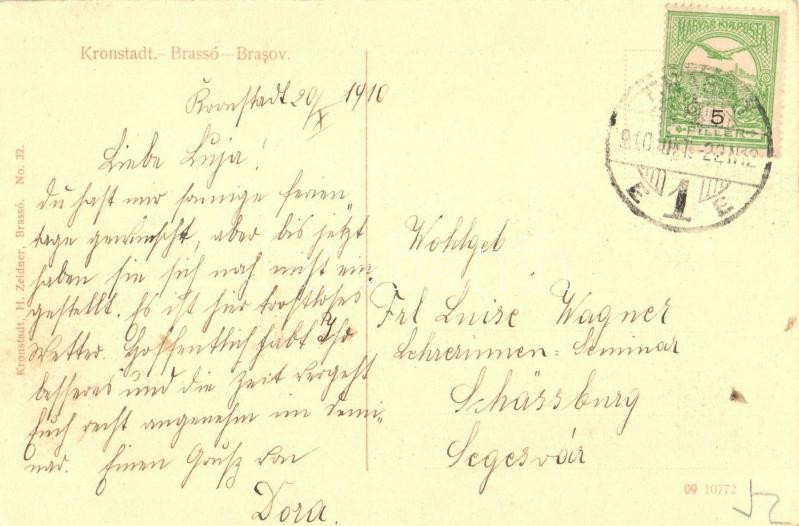 Kronstadt.– Brassó – Braşov.
Kronstadt 20/X 1910
Liebe Luja!
Du hast mir sonnige Ferien
tage gewünscht, aber bis jetzt
haben sie sich noch nicht ein
gestellt. Es ist hier trostloses
Wetter. Hoffentlich habt Ihr
besseres und die Zeit vergeht
Euch recht angenehm im Semi-
nar. Einen Grusz von
Dora.
Kronstadt, H. Zeidner, Brassó. No. 32.
MAGYAR KIR. POSTA
5
FILLER
1
Wohlgeb
Frl Luise Wagner
Lehrerinnen-Seminar
Schässburg
Segesvár
09 10772